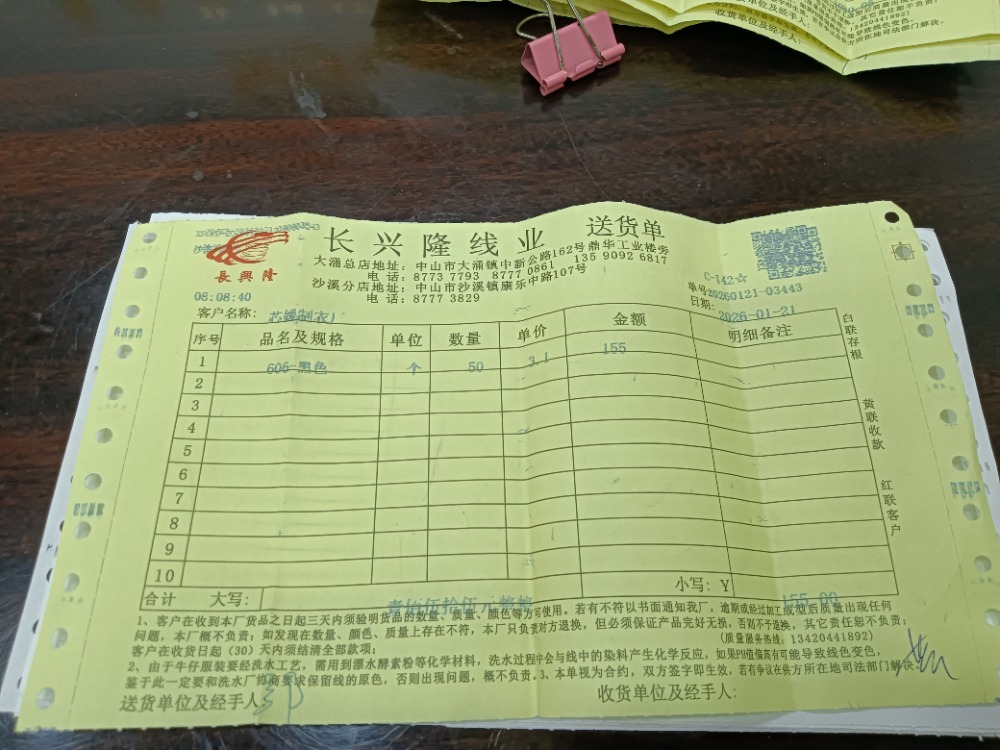 长兴隆线业 送货单
長興隆
大涌总店地址：中山市大涌镇中新公路162号鼎华工业楼旁
电话：8773 7793 8777 0861 135 9092 6817
沙溪分店地址：中山市沙溪镇康乐中路107号
电话：8777 3829
C-142☆
单号20260121-03443
日期：2026-01-21
08:08:40
客户名称：
序号 品名及规格 单位 数量 单价 金额 明细备注
1 606-黑色 个 50 3.1 155
2
3
4
5
6
7
8
9
10
合计 大写：壹佰伍拾伍元整 小写：Y 155.00
白联存根
黄联收款
红联客户
1、客户在收到本厂货品之日起三天内须验明货品的数量、质量、颜色等方可使用，若有不符以书面通知我厂，逾期或经过加工成型后质量出现任何
问题，本厂概不负责；如发现在数量、颜色、质量上存在不符，本厂只负责对方退换，但必须保证产品完好无损，否则不予退换，其它责任恕不负责；
客户在收货日起（30）天内须结清全部款项； (质量服务热线：13420441892)
2、由于牛仔服装要经洗水工艺，需用到漂水酵素粉等化学材料，洗水过程中会与线中的染料产生化学反应，如果PH值偏高有可能导致线色变色，
鉴于此一定要和洗水厂协商要求保留线的原色，否则出现问题，概不负责。3、本单视为合约，双方签字即生效，若有争议在供方所在地司法部门解决。
送货单位及经手人： 收货单位及经手人：
其它责任恕不负责；
13420441892)
导致线色变色，
方所在地司法部门解决。
收货单位及经手人：